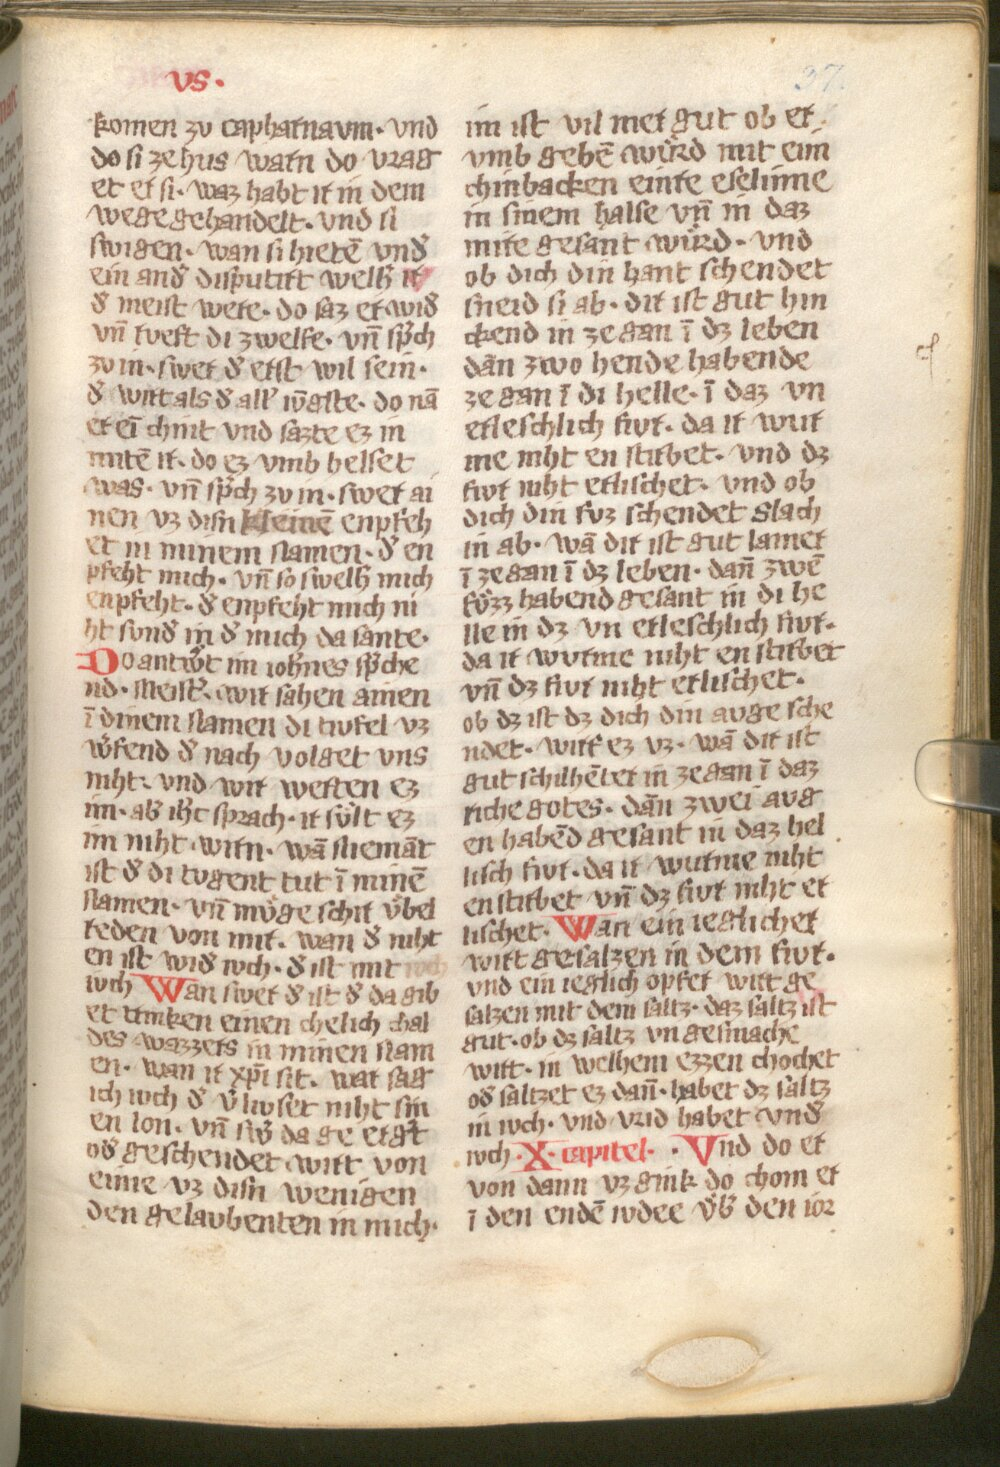 vs.
37.
komen zv capharnavm. vnd
do si ze hus warn do vrag
et er si. waz habt ir in dem
wege gehandelt. vnd si
swigen. wan si hietē vnđ
ein anđ disputirt welhˀ ir
đ meist were. do saz er wiđ
vn̄ rveft di zwelfe. vn̄ spˀch
zv in. swer đ erst wil sein.
đ wirt als đ allˀ iv̄gste. do nā
er eī chint vnd sazte ez in
mitē ir. do ez vmb helset
was. vn̄ spˀch zv in. swer ai
nen vz disn kleinē enpfeh
et in minem namen. đ en
pfeht mich. vn̄ so swelhˀ mich
enpfeht. đ enpfeht mich ni
ht sunđ in đ mich da sante.
Do antwˀt im iohˀnes spˀche
nd. Meistˀ. wir sahen ainen
ī dinem namen di tivfel vz
wˀfend đ nach volget vns
niht. vnd wir werten ez
im. abˀ ihˀc sprach. ir svlt ez
im niht wern. wā niemāt
ist đ di tvgent tut ī minē
namen. vn̄ mvge schir vbel
reden von mir. wan đ niht
en ist wiđ ivch. đ ist mit
ivch Wan swer đ ist đ da gib
et trinken einen chelich chal
des wazzers in minen nam
en. wan ir xp̄i sit. war sag
ich ivch đ vˀlivset niht sin
en lon. vn̄ swˀ da ge ergˀt
ođ geschendet wirt von
eime vz disn wenigen
den gelaubenten in mich.
im ist vil mer gut ob er
vmb gebē wurd mit eim
chinbacken einre eselinne
in sinem halse vn̄ in daz
mire gesant wurd. vnd
ob dich din hant schendet
sneid si ab. dir ist gut hin
ckend in ze gan ī dz leben
dān zwo hende habende
ze gan ī di helle. ī daz vn
erleschlich fivr. da ir wur
me niht en stirbet. vnd dz
fivr niht erlischet. vnd ob
dich din fuz schendet slach
in ab. wā dir ist gut lamer
ī ze gan ī dz leben. dan̄ zwē
fvzz habend gesant in di he
lle in dz vn erleschlich fivr.
da ir wurme niht en stirbet
vn̄ dz fivr niht erlischet.
ob dz ist dz dich din avge sche
ndet. wirf ez vz. wā dir ist
gut schilhē̄ter in ze gan ī daz
riche gotes. dān zwei avg
en habēd gesant in daz hel
lisch fivr. da ir wurme niht
en stirbet vn̄ dz fivr niht er
lischet. Wan ein ieglicher
wirt gesalzen in dem fivr.
vnd ein ieglich opfer wirt ge
salzen mit dem saltz. daz saltz ist
gut. ob dz saltz vn gesmache
wirt. in welhem ezzen chochet
ođ saltzet ez dan̄. habet dz saltz
in ivch. vnd vrid habet vnđ
ivch. X. capitel. Vnd do er
von dann vz gink do chom er
ī den endē ivdee vbˀ den ior